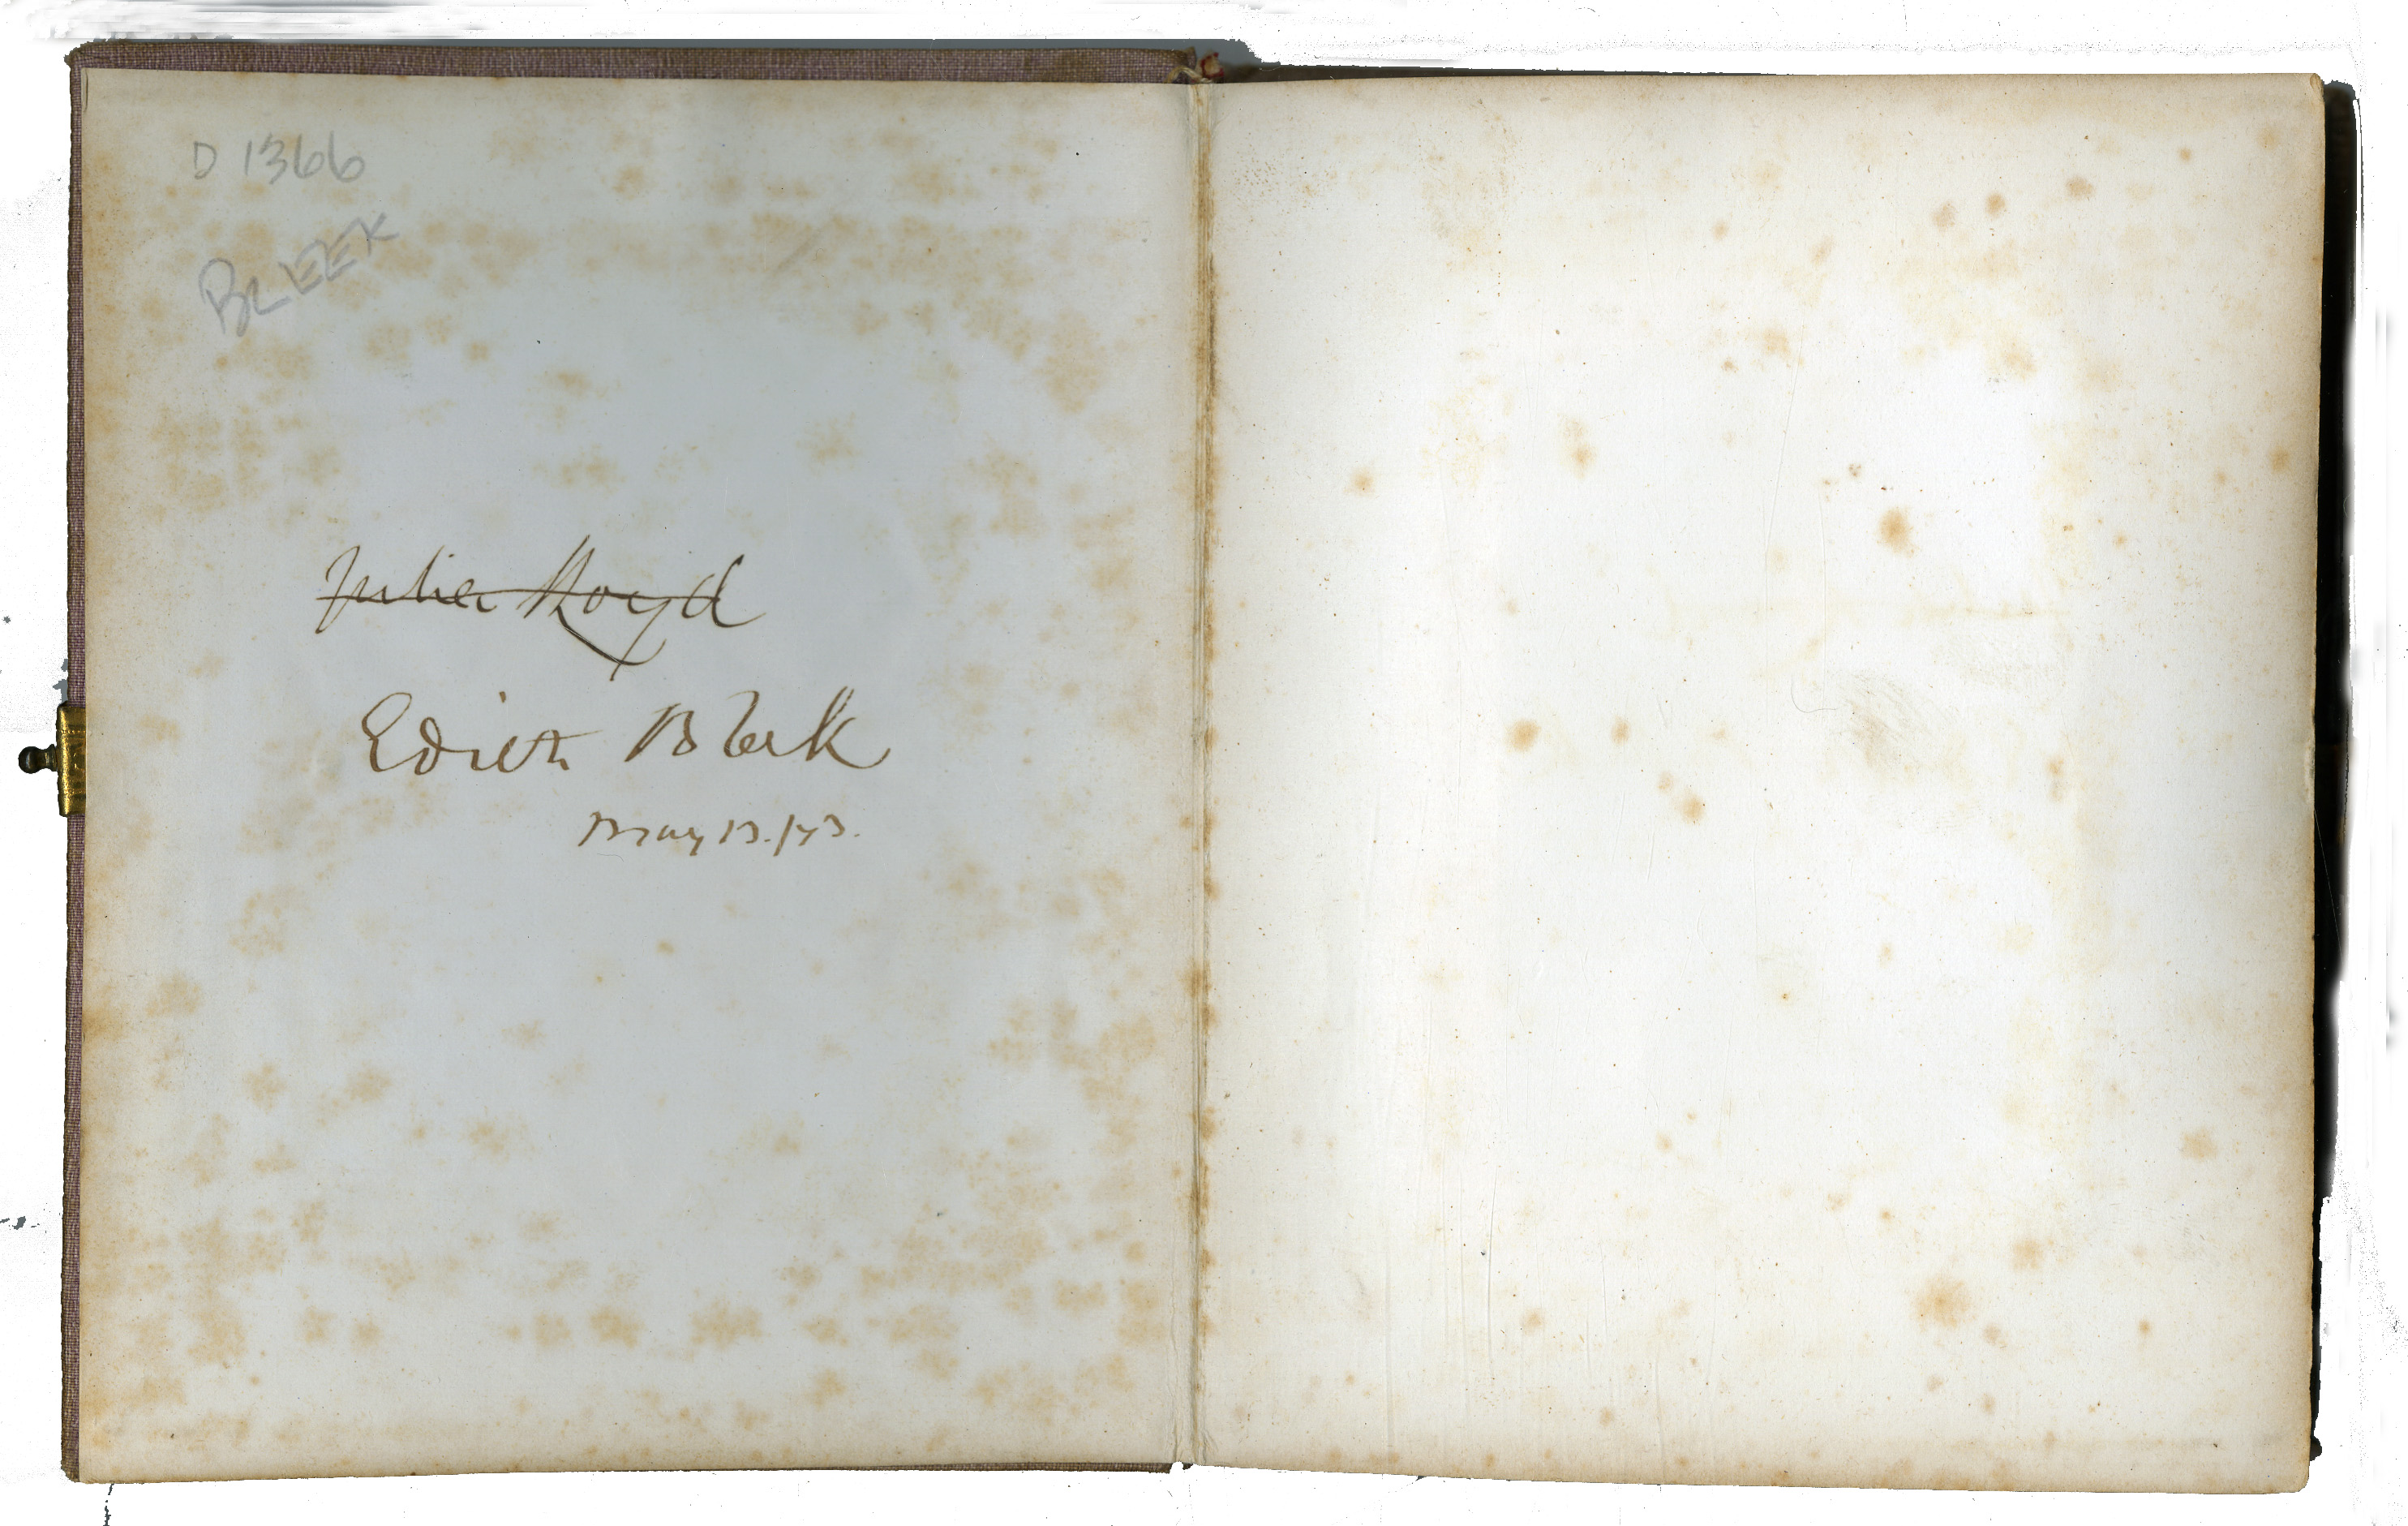 D 1366
BLEEK
Julia Lloyd
Edith Bleek
May 13./73.